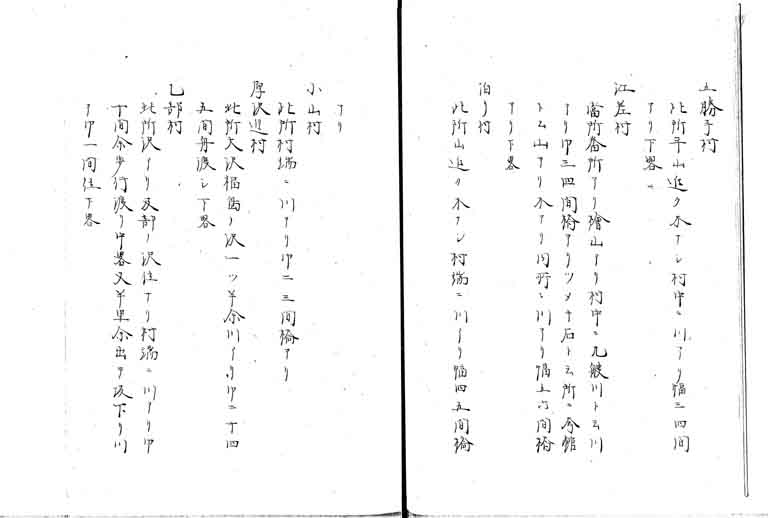 五勝手村
此所平山近ク木ナシ村中ニ川アリ幅三四間
アリ下畧
江差村
当所番所アリ檜山アリ村中ニ九艘川ト云川
アリ巾三四間橋アリツメキ石ト云所ニ古館
ト云山アリ木アリ同所ニ川アリ幅五六間橋
アリ下畧
泊リ村
此所山近ク木ナシ村端ニ川アリ幅四五間橋
アリ
小山村
此所村端ニ川アリ巾二三間橋アリ
厚沢辺村
此所大沢福島ノ沢一ツ半余川アリ巾二十四
五間舟渡シ下畧
乙部村
此所沢アリ及部ノ沢位ナリ村端ニ川アリ巾
十間余歩行渡リ中畧又半里余出テ坂下リ川
アリ巾一間位下畧